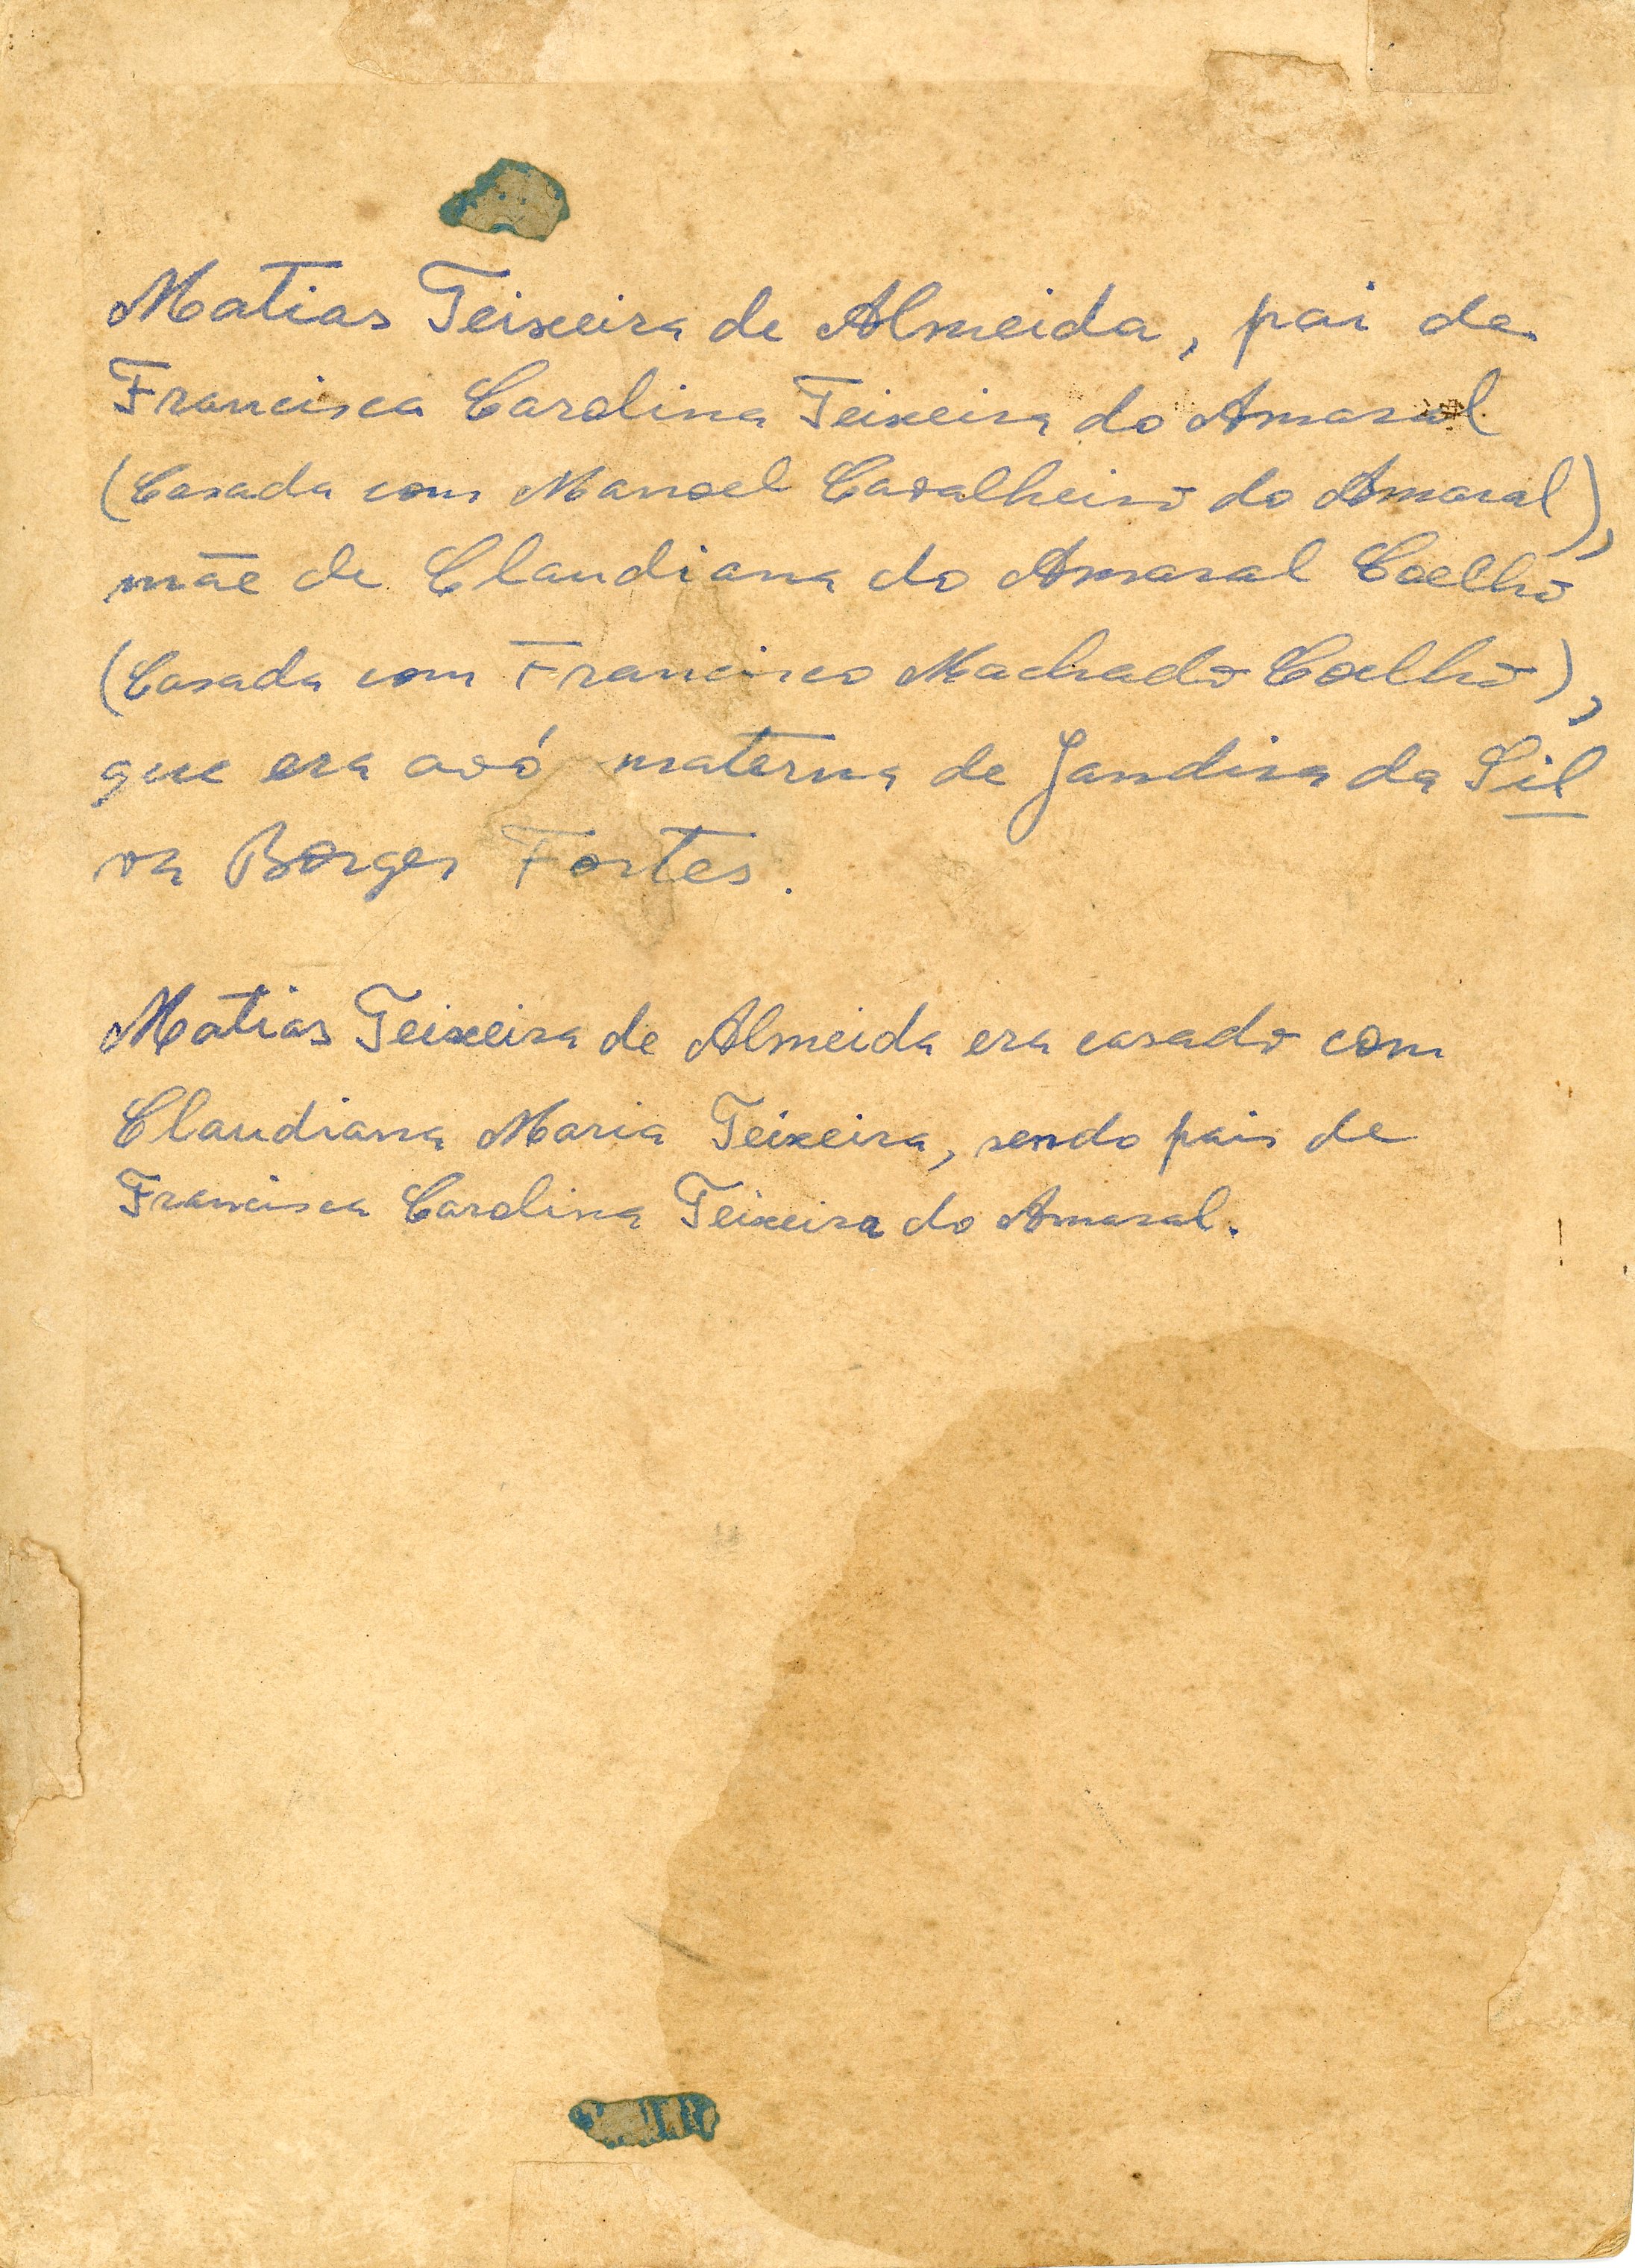 Matias Teixeira de Almeida, pai de
Francisca Carolina Teixeira do Amaral
(Casada com Manoel Cavalheiro do Amaral),
mãe de Claudiana do Amaral Coelho
(Casada com Francisco Machado Coelho),
que era avó materna de Jandira da Sil
va Borges Fortes.
Matias Teixeira de Almeida era casado com
Claudiana Maria Teixeira, sendo pais de
Francisca Carolina Teixeira do Amaral.